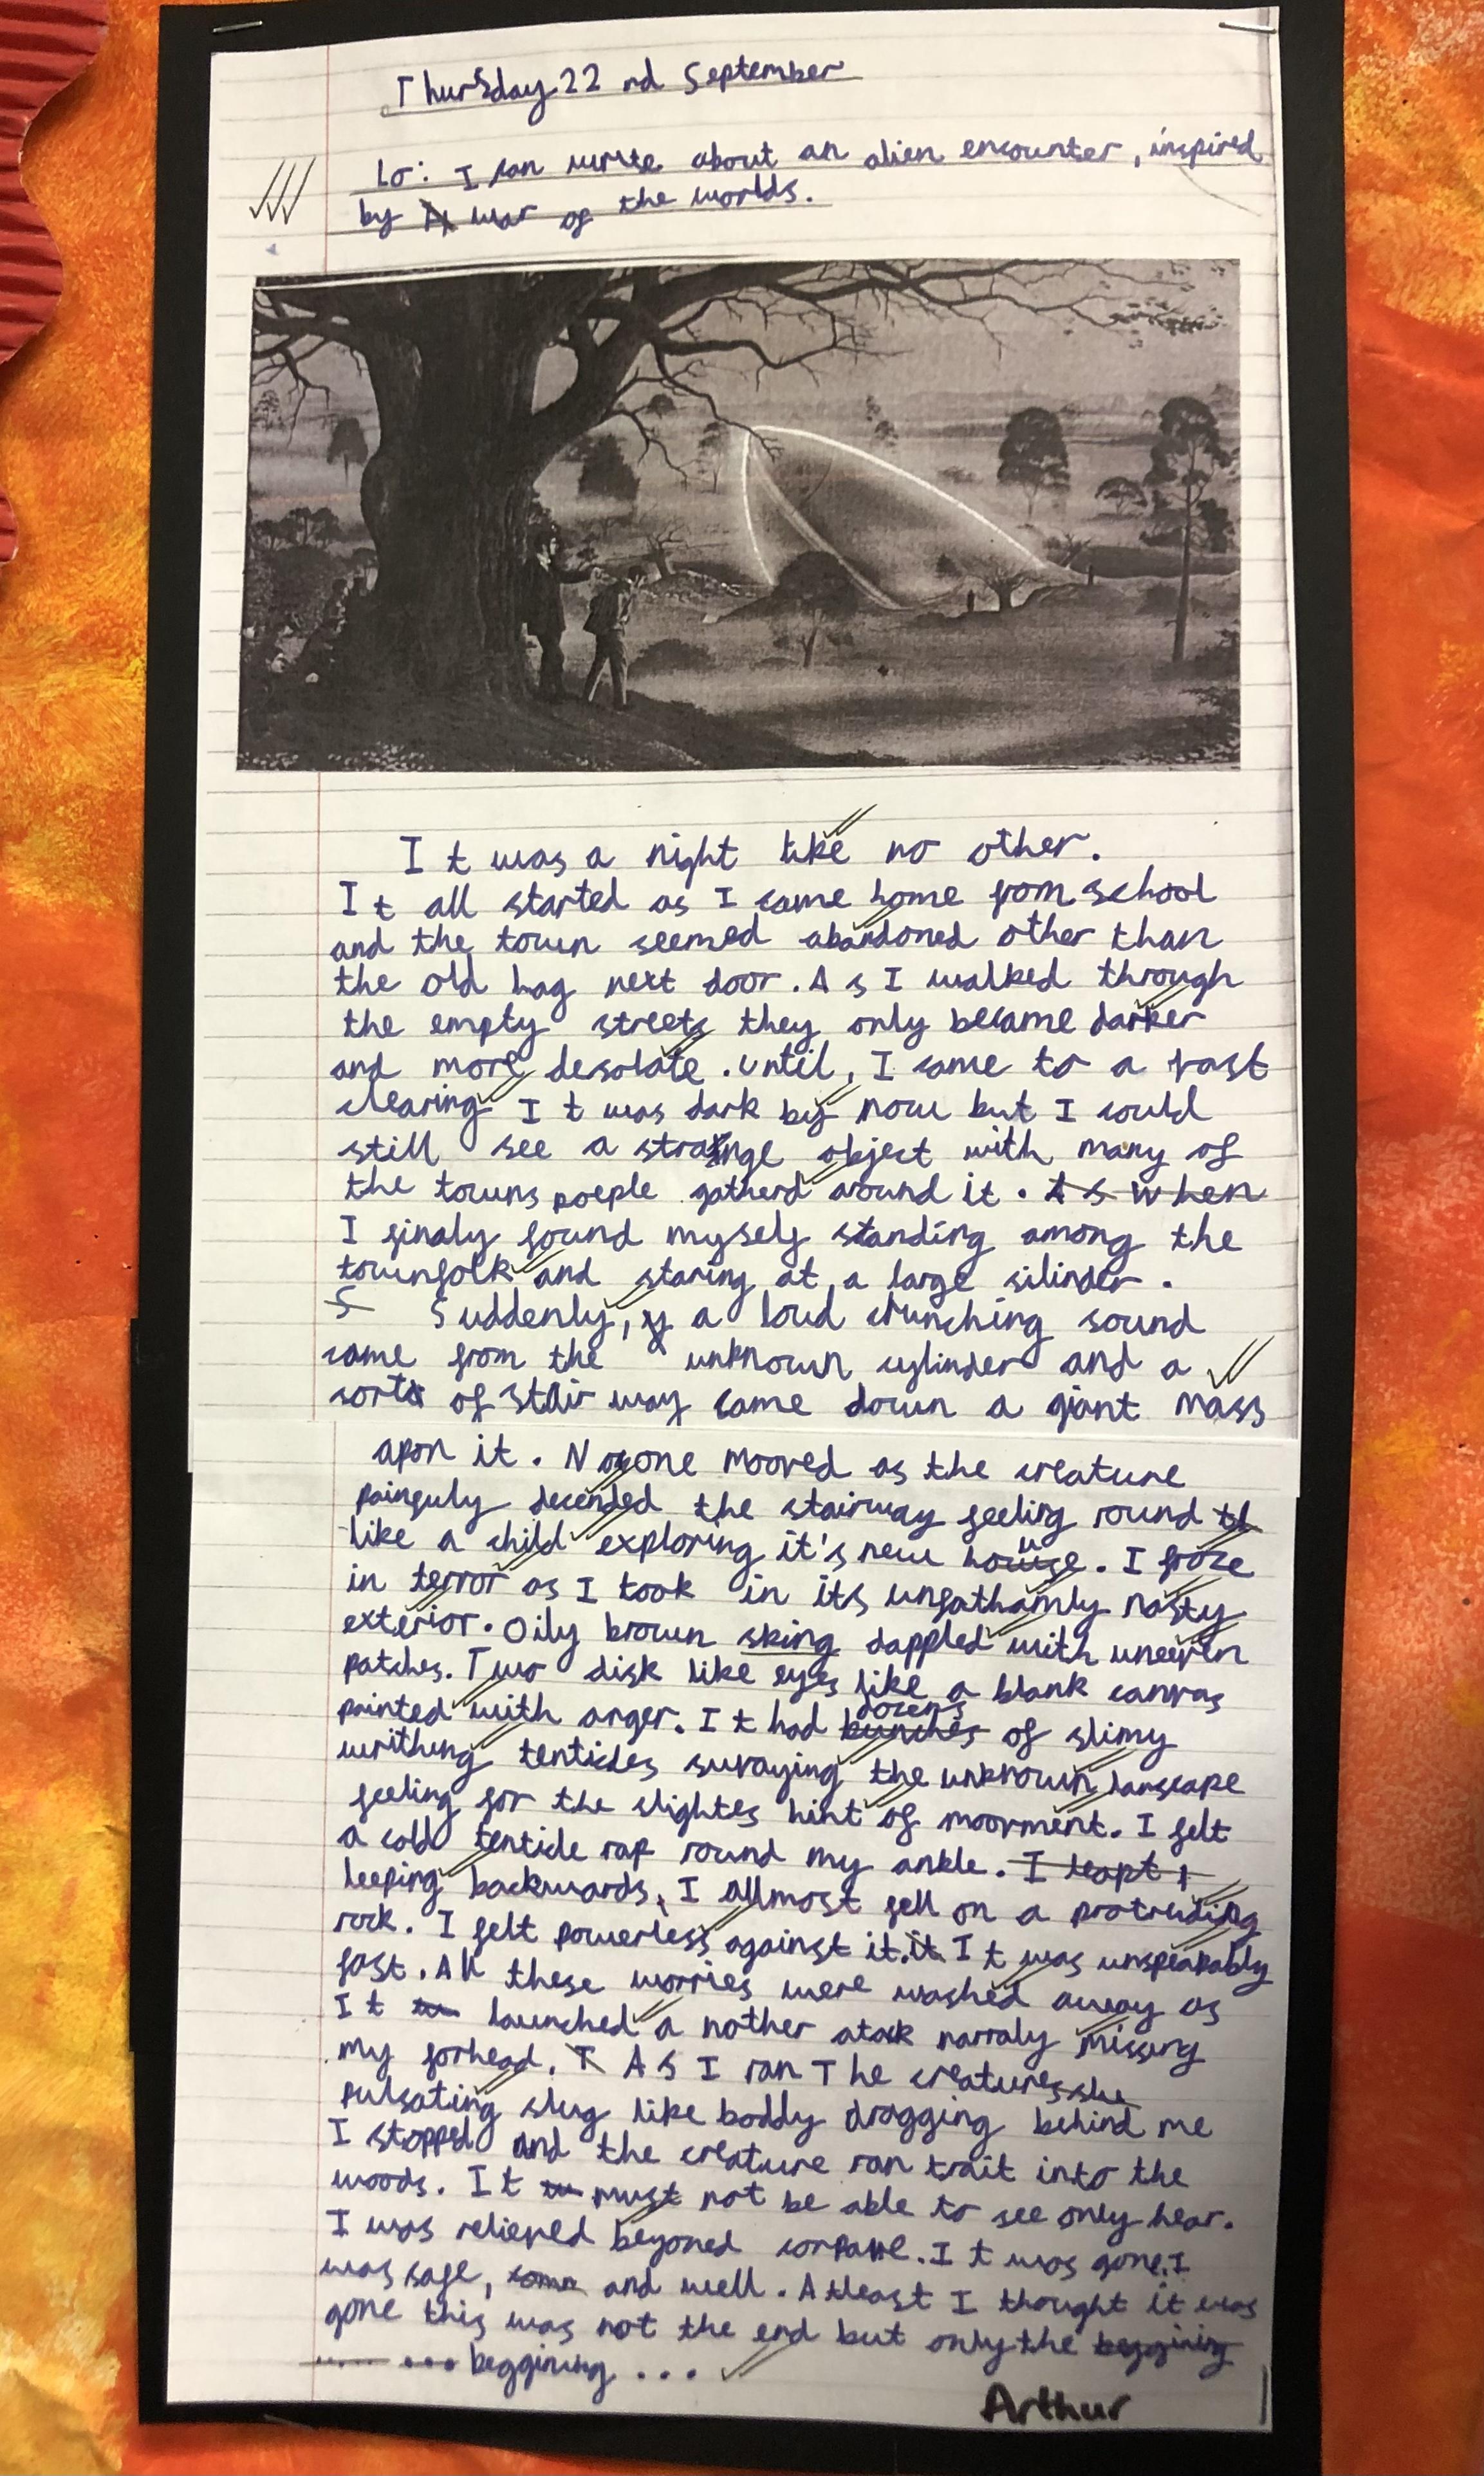 Thursday 22nd September
Lo: I can write about an alien encounter, inspired
by war of the worlds.
It was a night like no other.
It all started as I came home from school
and the town seemed abandoned other than
the old hag next door. As I walked through
the empty streets they only became darker
and more desolate. until, I came to a vast
clearing It was dark by now but I could
still see a strange object with many of
the towns poeple gatherd around it. As When
I finaly found myself standing among the
townfolk and staring at a large silinder.
S Suddenly, a loud crunching sound
came from the unknown cylinder and a
sorts of stair way came down a giant mass
apon it. Noone mooved as the creature
painfuly decended the stairway feeling round th
like a child exploring it's new house. I froze
in terror as I took in its unfathamly nasty
exterior. Oily brown sking dappled with uneven
patches. Two disk like eyes like a blank canvas
painted with anger. It had bunches dozens of slimy
writhing tenticles survaying the unknown lanscape
feeling for the slightes hint of moovment. I felt
a cold tenticle rap round my ankle. I leapt
leeping backwards, I allmost fell on a protruding
rock. I felt powerless against it. it It was unspeakably
fast. All these worries were washed away as
It launched a nother atack narraly missing
my forhead. T As I ran The creatures slu
pulsating slug like boddy dragging behind me
I stopped and the creature ran trait into the
woods. It must not be able to see only hear.
I was relieved beyoned compare. It was gone. I
was safe, and well. Atleast I thought it was
gone this was not the end but only the beggining
.... ... beggining ...
Arthur